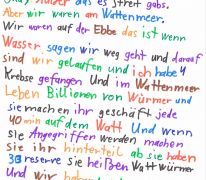 glauben das es streit gabs.
Aber wir waren am Wattenmeer.
Wir waren auf der Ebbe das ist wenn
Wasser sagen wir weg geht und darauf
sind wir gelaufen und ich habe 4
Krebse gefangen Und im Wattenmeer
Leben Billionen vor Würmer und
sie machen ihr geschäft jede
40 min auf dem Watt Und wenn
sie Angegriffen werden machen
sie ihr hinterteil ab sie haben
30 reserve sie heißen Wattwürmer
Und wir haben